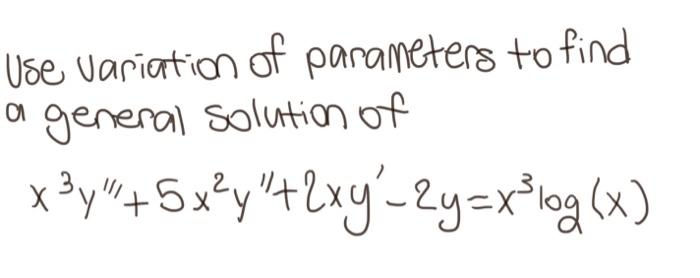 Use variation of parameters to find
a general solution of
x³y'''+5x²y''+2xy'-2y=x³log(x)